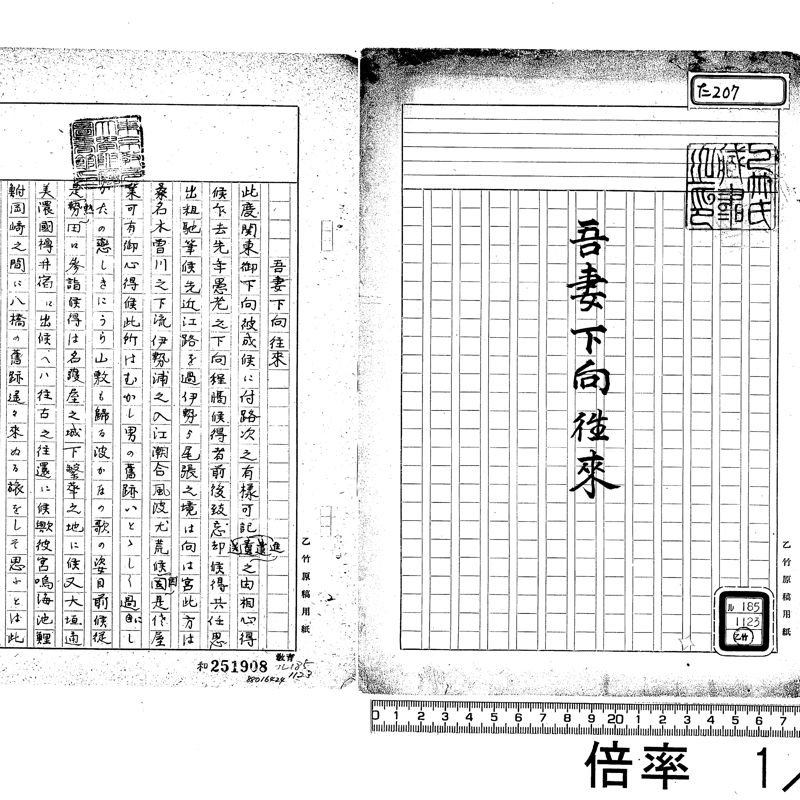 た207
乙竹氏蔵書之印
吾妻下向往來
乙竹原稿用紙
ル185
1123
(乙竹)
吾妻下向往來
此度関東御下向被成候に付路次之有様可記進遣之由相心得
候乍去先年愚老之下向程隔候得者前後致忘却候得共任思
出粗馳筆候先近江路を過伊勢ゟ尾張之境は向は宮此方は
桑名木曽川之下流伊勢浦之入江潮合風波尤荒候因是作屋
業可有御心得候此所はむかし男の舊跡いとゝしく過にし
かたの戀しきにうら山敷も歸る波かなの歌の姿目前候従
是熱田江参詣候得は名護屋之城下繁華之地に候又大垣通
美濃國樽井宿に出候へハ往古之往還に候歟彼宮鳴海池鯉
鮒岡崎之間に八橋の舊跡遙々來ぬる旅をしそ思ふとは此
乙竹原稿用紙
和251908
教育
ル185
1123
88016424
0 1 2 3 4 5 6 7 8 9 10 1 2 3 4 5 6 7 8 9 20 1 2 3 4 5 6 7
倍率 1/